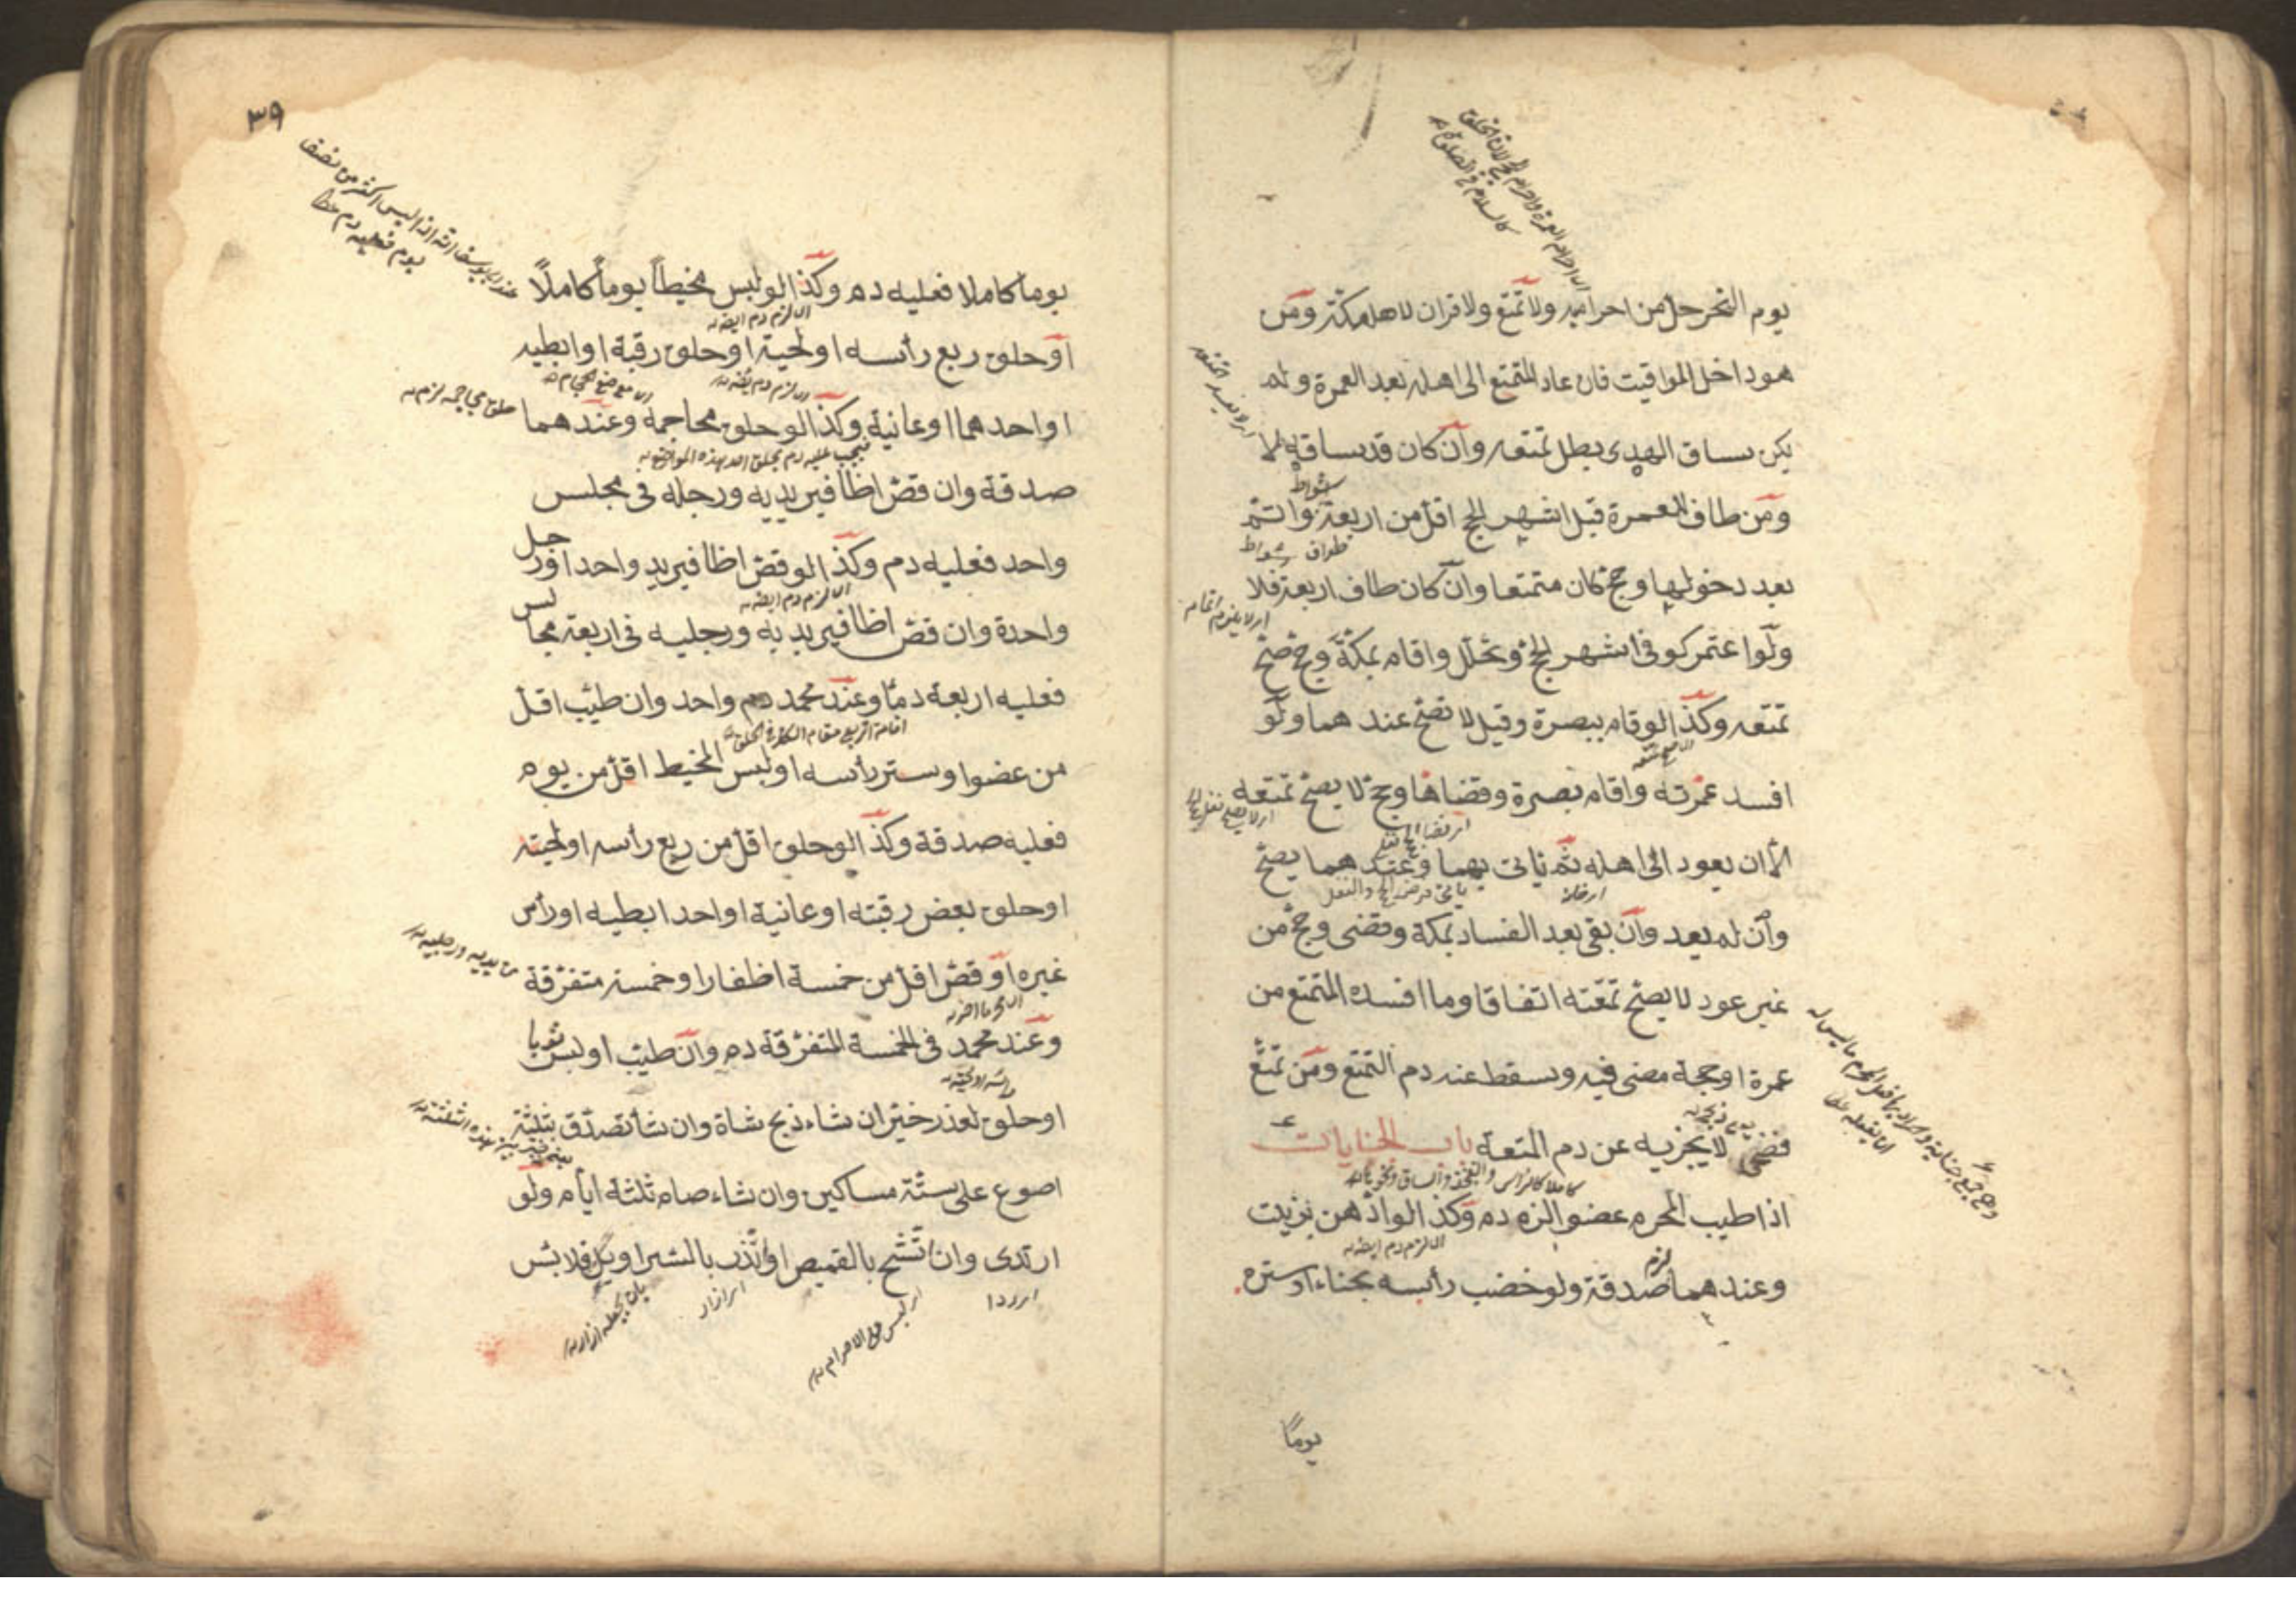 يوم النحر حل من احراميه ولا تمتع ولا قران لاهل مكة ومن
هو داخل المواقيت فان عاد المتمتع الى اهله بعد العمرة ولم
يكن ساق الهدى بطل تمتعه وان كان قد ساقه لا
ومن طاف للعمرة قبل اشهر الحج اقل من اربعة واتم
شواط
بعد دخولها وحج كان متمتعا وان كان طاف اربعة فلا
طواف شواط
ولو اعتمر كوفى فى اشهر الحج وتحلل واقام بمكة وحج صح
تمتعه وكذا لو قام ببصرة وقيل لا تصح عند هما ولو
افسد عمرته واقام بصرة وقضاها وحج لا يصح تمتعه
الا ان يعود الى اهله ثم ياتى بهما وعند هما يصح
وان لم يعد وان بقى بعد الفساد بمكة وقضى وحج من
غير عود لا يصح تمتعه اتفاقا وما افسده المتمتع من
عمرة او حجة مضى فيه وسقط عنه دم التمتع ومن تمتع
فضحى لا يجزيه عن دم المتعة باب الجنايات
اذا طيب المحرم عضوا لزم دم وكذا لو ادهن بزيت
اى لزم دم ايضا
وعند هما صدقة ولو خضب رأسه بحناء او ستره
لزم
يوما
٣٩
يوم فعليه دم
يوما كاملا فعليه دم وكذا لو لبس مخيطا يوما كاملا
اى لزم دم ايضا
او حلق ربع رأسه او لحيته او حلق رقبة او ابطيه
اى لزم دم ايضا
اى موضع الحجام
او احدهما او عانية وكذا لو حلق محاجمة وعند هما
حلق محاجمه لزم
فيجب عليه دم بحلق احد بهذه المواضع
صدقة وان قص اظافير يديه ورجله فى مجلس
واحد فعليه دم وكذا لو قص اظافير يد واحد او رجل
اى لزم دم ايضا
واحدة وان قص اظافير يديه ورجليه فى اربعة مجالس
فعليه اربعة دما وعند محمد دم واحد وان طيب اقل
اقامة الربع مقام الكل فى الحلق
من عضو او ستر رأسه او لبس المخيط اقل من يوم
فعليه صدقة وكذا لو حلق اقل من ربع رأسه او لحيته
او حلق بعض رقبته او عانية او احد ابطيه او رأس
غيره او قص اقل من خمسة اظفار او خمسة متفرقة
من يديه ورجليه
وعند محمد فى الخمسة المتفرقة دم وان طيب او لبس ثوبا
رأسه او لحيته
او حلق لعذر خير ان شاء ذبح شاة وان شاء تصدق بثلثة
اصوع على ستة مساكين وان شاء صام ثلثة ايام ولو
ارتدى وان اتشح بالقميص او اتزر بالسراويل فلا بئس